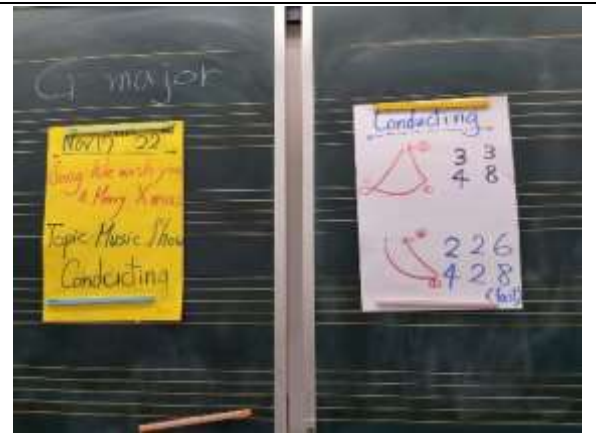 G major
Nov 17 '22
Song: We wish you
a Merry Xmas
Topic: Music Show
Conducting
Conducting
3 3
4 8
2 2 6
4 2 8
(fast)